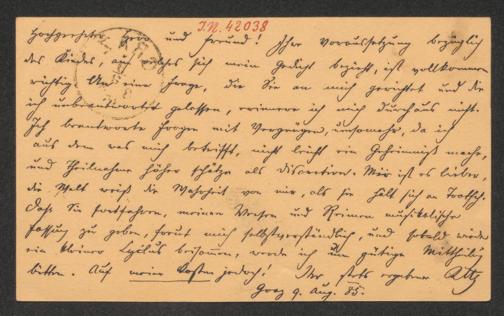 I.N. 42038
Hochgeehrter Herr und Freund! Ihre Voraussetzung bezüglich
des Kindes, auf welches sich mein Gedicht bezieht, ist vollkommen
richtig. An eine Frage, die Sie an mich gerichtet und die
ich unbeantwortet gelassen, erinnere ich mich durchaus nicht.
Ich beantworte Fragen mit Vergnügen, umsomehr, da ich
aus dem was mich betrifft, nicht leicht ein Geheimniß mache,
und Theilnahme höher schätze als Discretion. Mir ist es lieber,
die Welt weiß die Wahrheit von mir, als sie hält sich an Tratsch.
Daß Sie fortfahren, meinen Versen und Reimen musikalische
Fassung zu geben, freut mich selbstverständlich, und sobald wieder
ein kleiner Cyclus beisammen, werde ich um gütige Mittheilung
bitten. Auf meine Kosten jedoch! Ihr stets ergebener
Graz 9. Aug. 85.